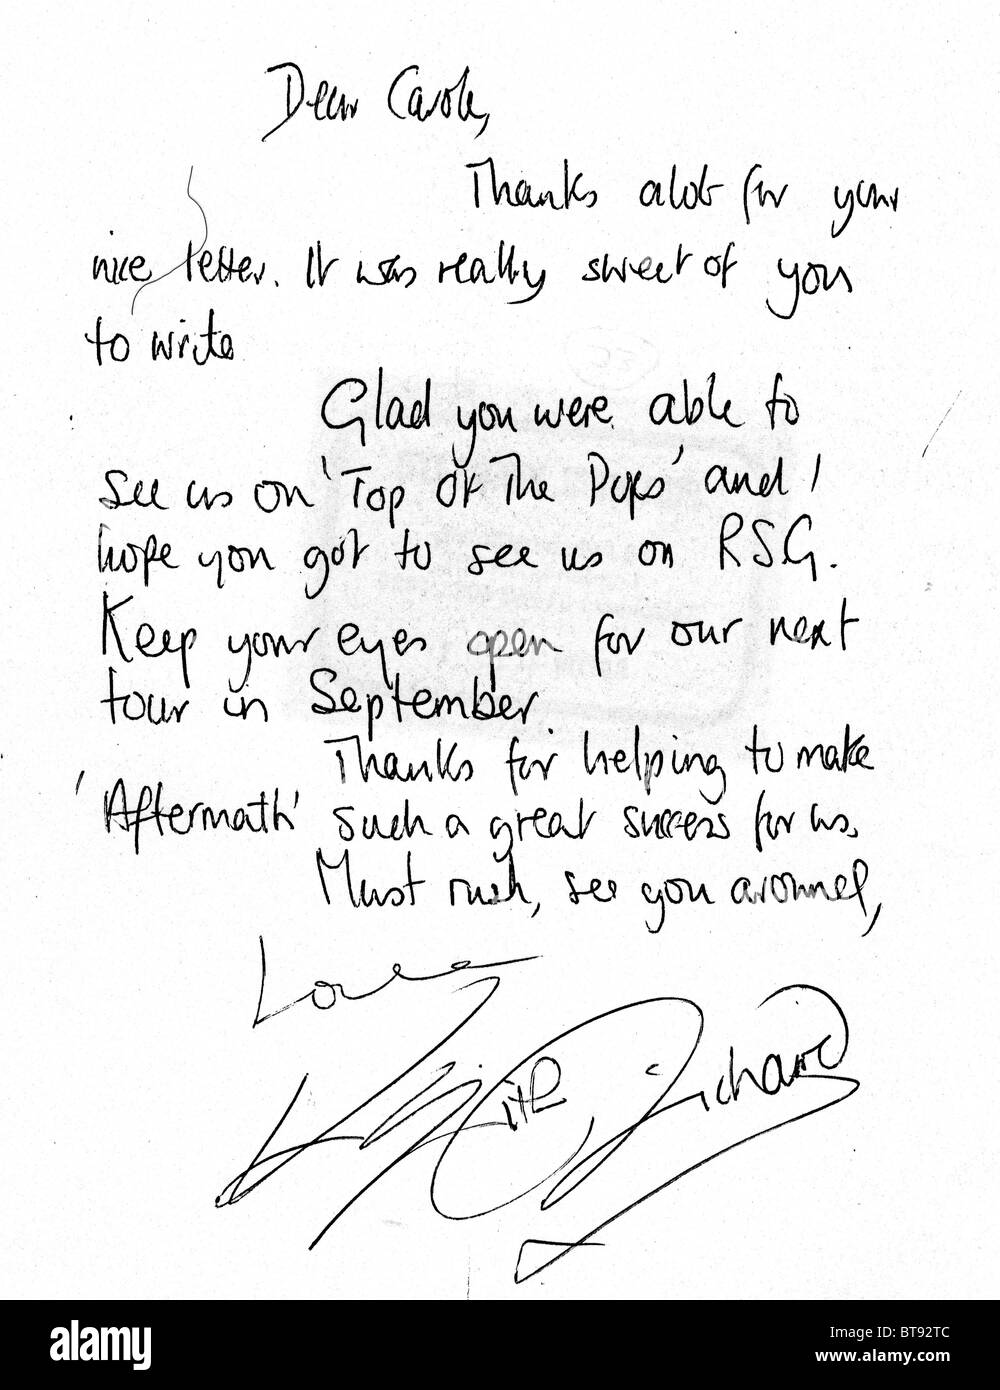 Dear Carole,
Thanks alot for your
nice letter. It was really sweet of you
to write
Glad you were able to
see us on 'Top Of The Pops' and I
hope you got to see us on RSG.
Keep your eyes open for our next
tour in September
Thanks for helping to make
'Aftermath' such a great success for us.
Must rush, see you around,
Love
Keith Richard
a
alamy
Image ID: BT92TC
www.alamy.com